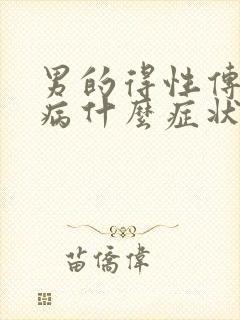 男的得性傳
病什麼症狀
苗僑偉